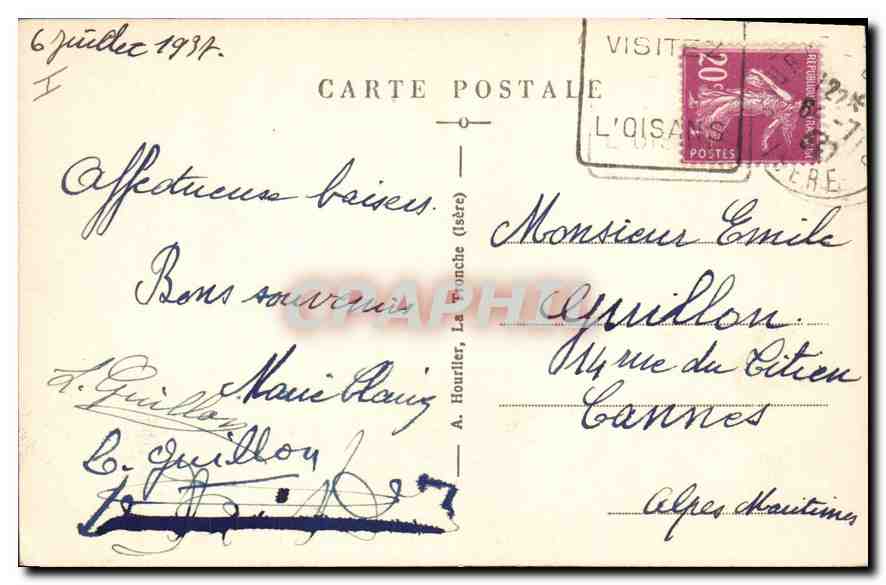 6 juillet 1937.
I
CARTE POSTALE
VISITEZ
L'OISANS
20c
REPUBLIQUE FRANCAISE
POSTES
ISERE
Affectueux baisers.
Bons souvenirs
L. Guillon
Marie Claire
L. Guillon
A. Hourlier, La Tronche (Isère)
Monsieur Emile
Guillon.
14 rue du Titien
Cannes
Alpes Maritimes
CPAPHIL